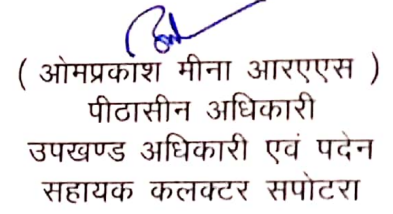 ( ओमप्रकाश मीना आरएएस )
पीठासीन अधिकारी
उपखण्ड अधिकारी एवं पदेन
सहायक कलक्टर सपोटरा